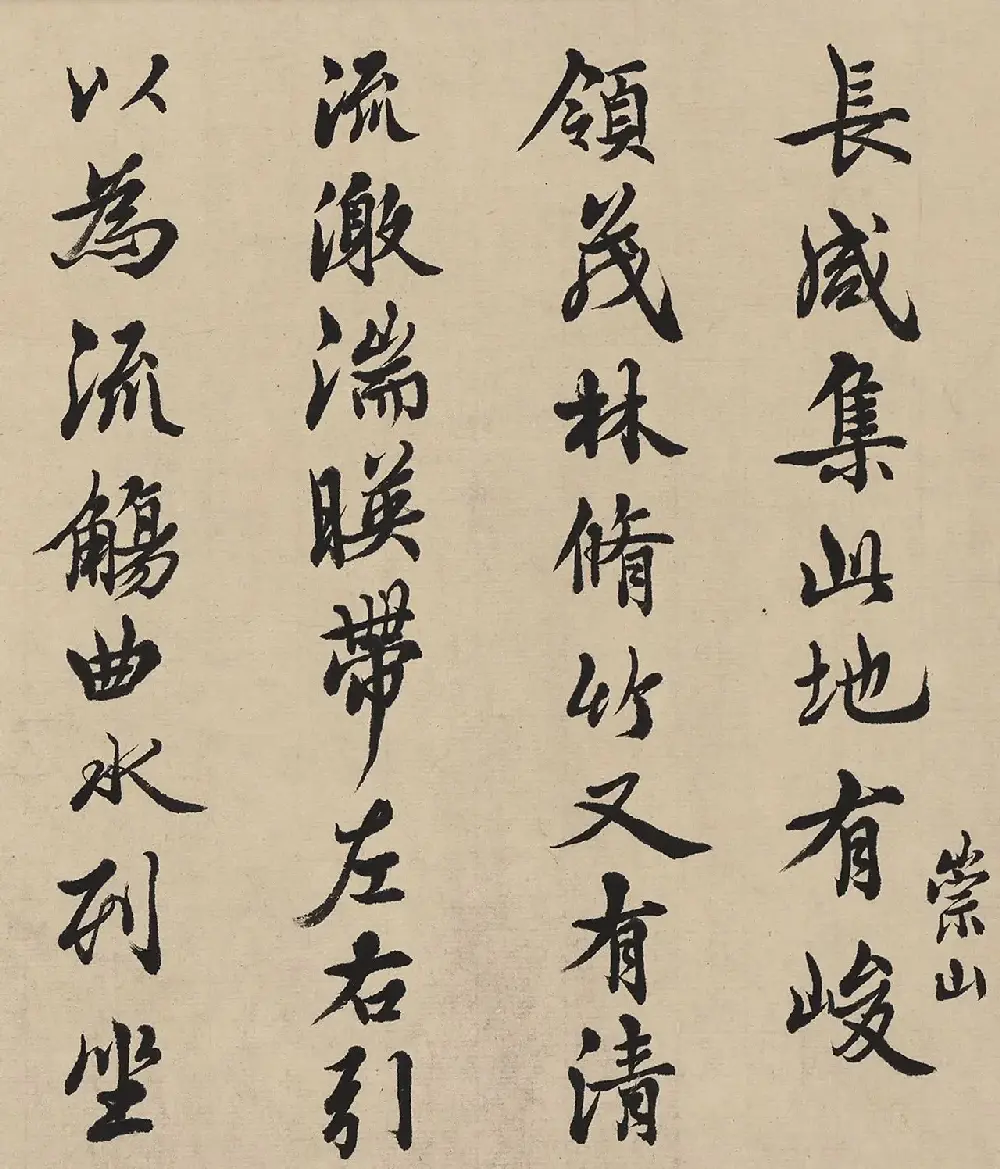 長咸集此地有崇山峻
領茂林脩竹又有清
流激湍暎帶左右引
以為流觴曲水列坐